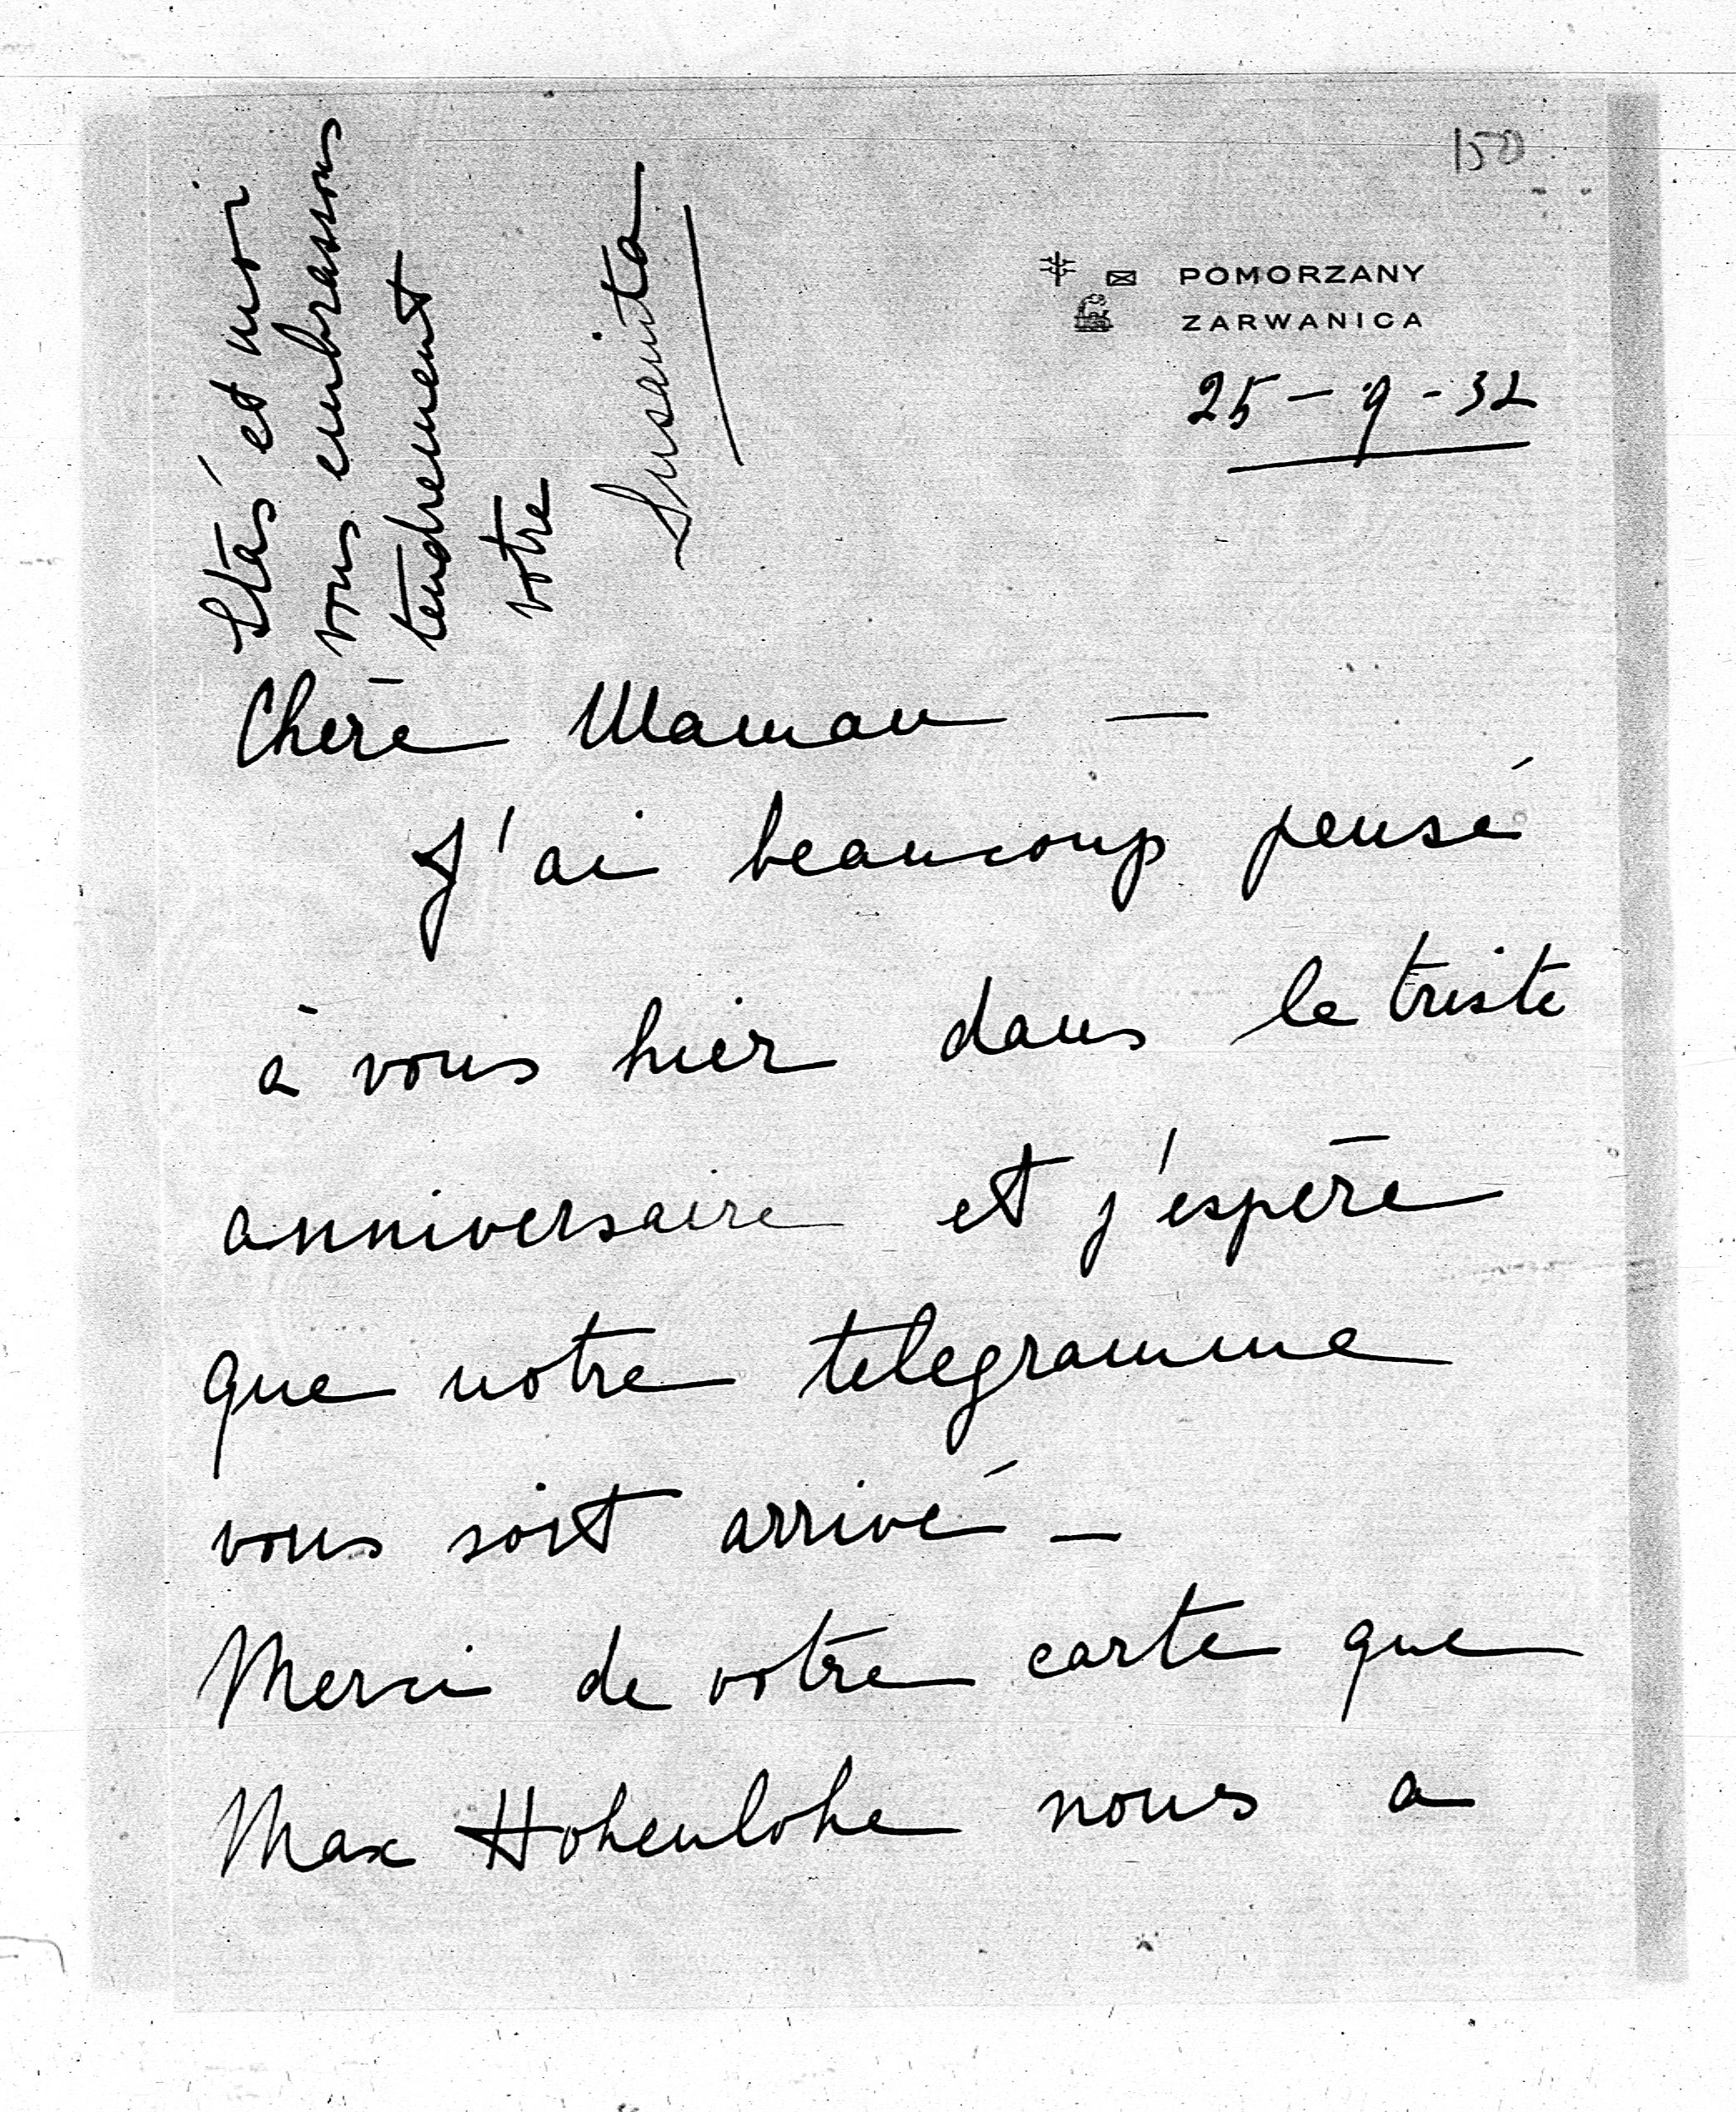 150
POMORZANY
ZARWANICA
25-9-32
Chère Maman —
J'ai beaucoup pensé
à vous hier dans le triste
anniversaire et j'espère
que notre telegramme
vous soit arrivé —
Merci de votre carte que
Max Hohenlohe nous a
Staś et moi
vous embrassons
tendrement
votre
Susanita